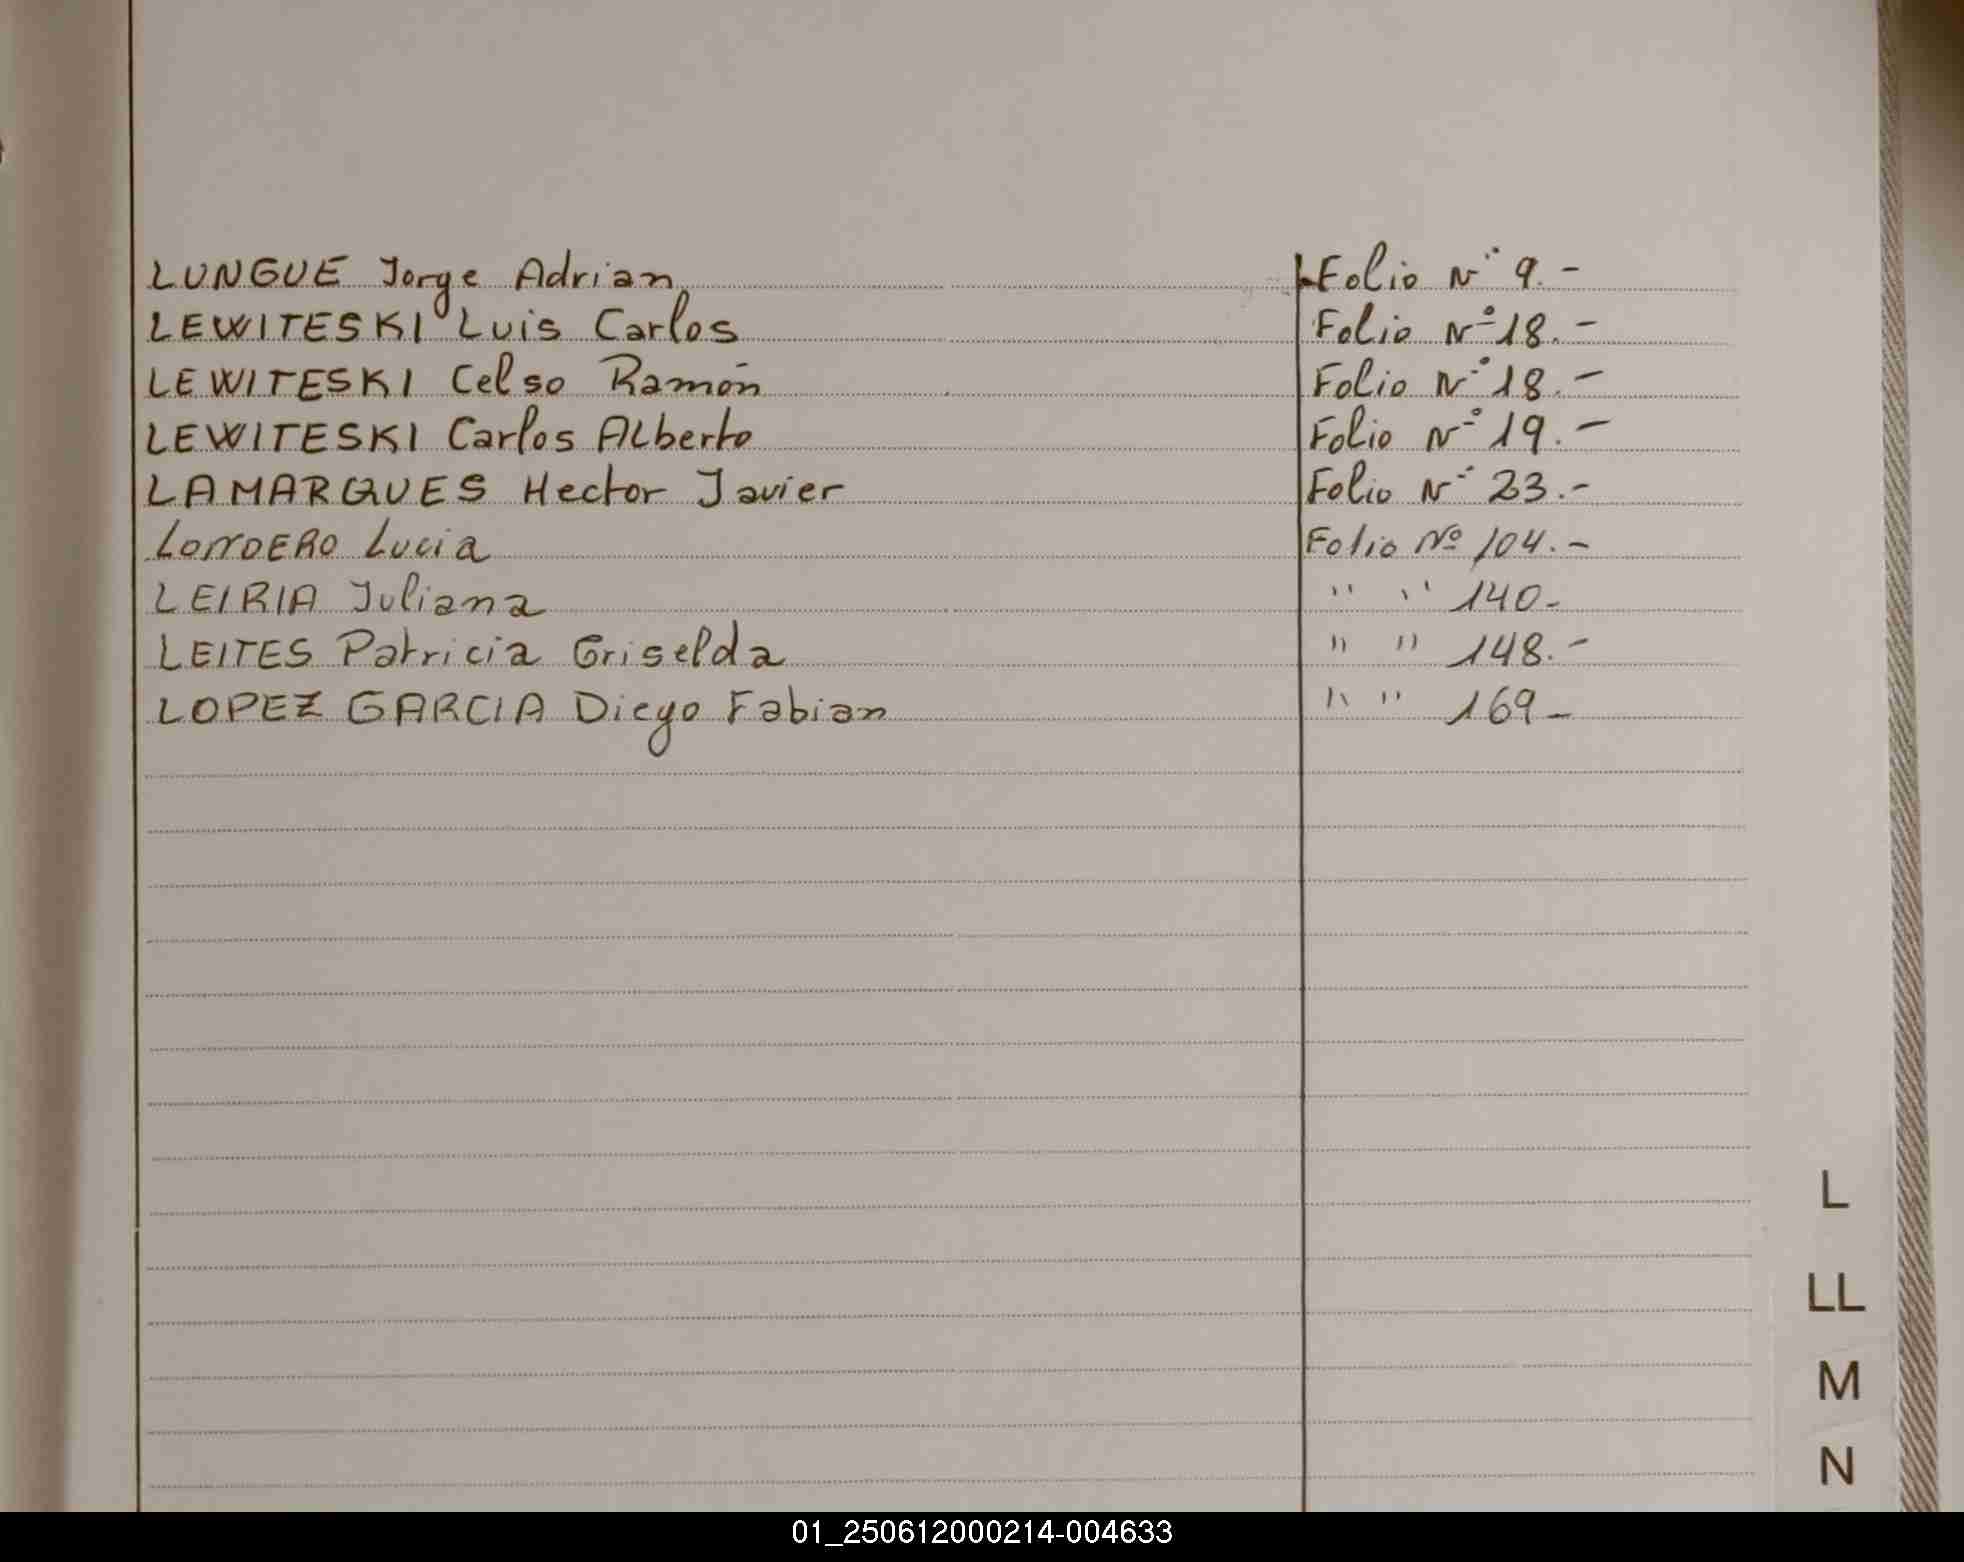 LUNGUE Jorge Adrian Folio Nº 9.-
LEWITESKI Luis Carlos Folio Nº 18.-
LEWITESKI Celso Ramón Folio Nº 18.-
LEWITESKI Carlos Alberto Folio Nº 19.-
LAMARQUES Hector Javier Folio Nº 23.-
LONDERO Lucia Folio Nº 104.-
LEIRIA Juliana " " 140-
LEITES Patricia Griselda " " 148.-
LOPEZ GARCIA Diego Fabian " " 169-
L
LL
M
N
01_250612000214-004633